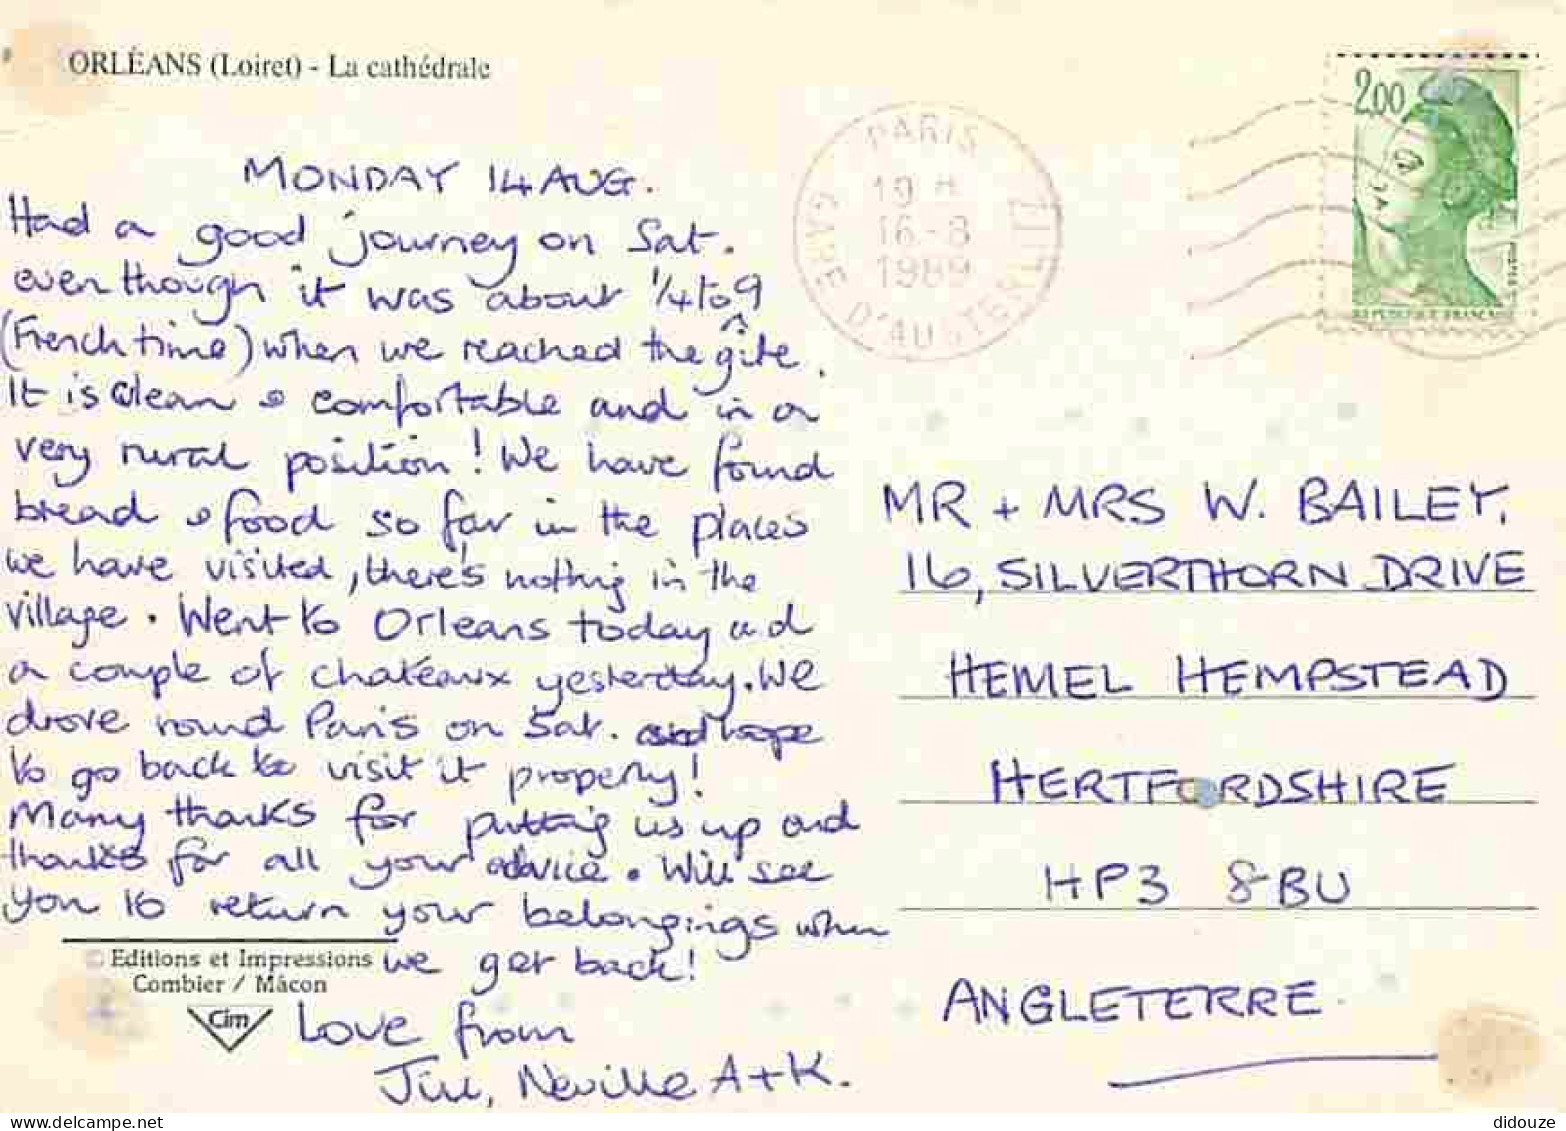 ORLÉANS (Loiret) - La cathédrale
2,00
REPUBLIQUE FRANÇAISE
PARIS
19 H
16-8
1989
GARE D'AUSTERLITZ
MONDAY 14 AUG.
Had a good journey on Sat.
even though it was about 1/4 to 9
(French time) when we reached the gîte.
It is clean & comfortable and in a
very rural position! We have found
bread & food so far in the places
we have visited, there's nothing in the
village. Went to Orleans today and
a couple of chateaux yesterday. We
drove round Paris on Sat. and hope
to go back to visit it properly!
Many thanks for putting us up and
thanks for all your advice. Will see
you to return your belongings when
we get back!
Love from
Jill, Neville A+K.
© Editions et Impressions
Combier / Mâcon
Cim
MR + MRS W. BAILEY,
16, SILVERTHORN DRIVE
HEMEL HEMPSTEAD
HERTFORDSHIRE
HP3 8BU
ANGLETERRE
didouze